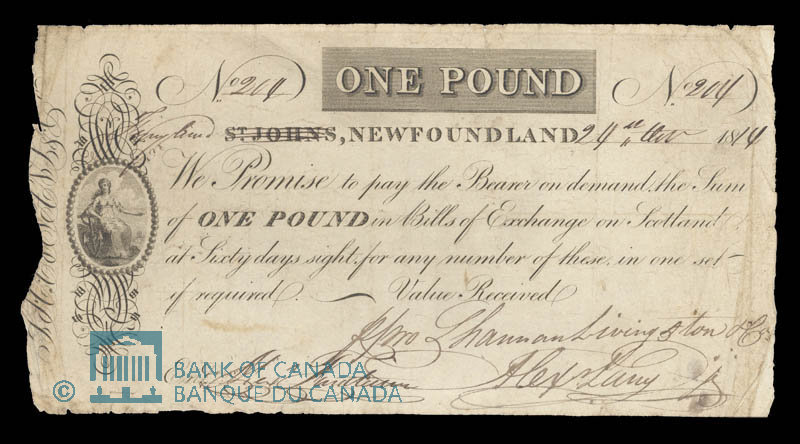 No 204
ONE POUND
No 204
ST JOHNS, NEWFOUNDLAND 24th 1814
We Promise to pay the Bearer on demand, the Sum
of ONE POUND in Bills of Exchange on Scotland
at Sixty days sight, for any number of these, in one set
if required. Value Received
ppro Shannan Livingston & Co
Alex
© BANK OF CANADA
BANQUE DU CANADA